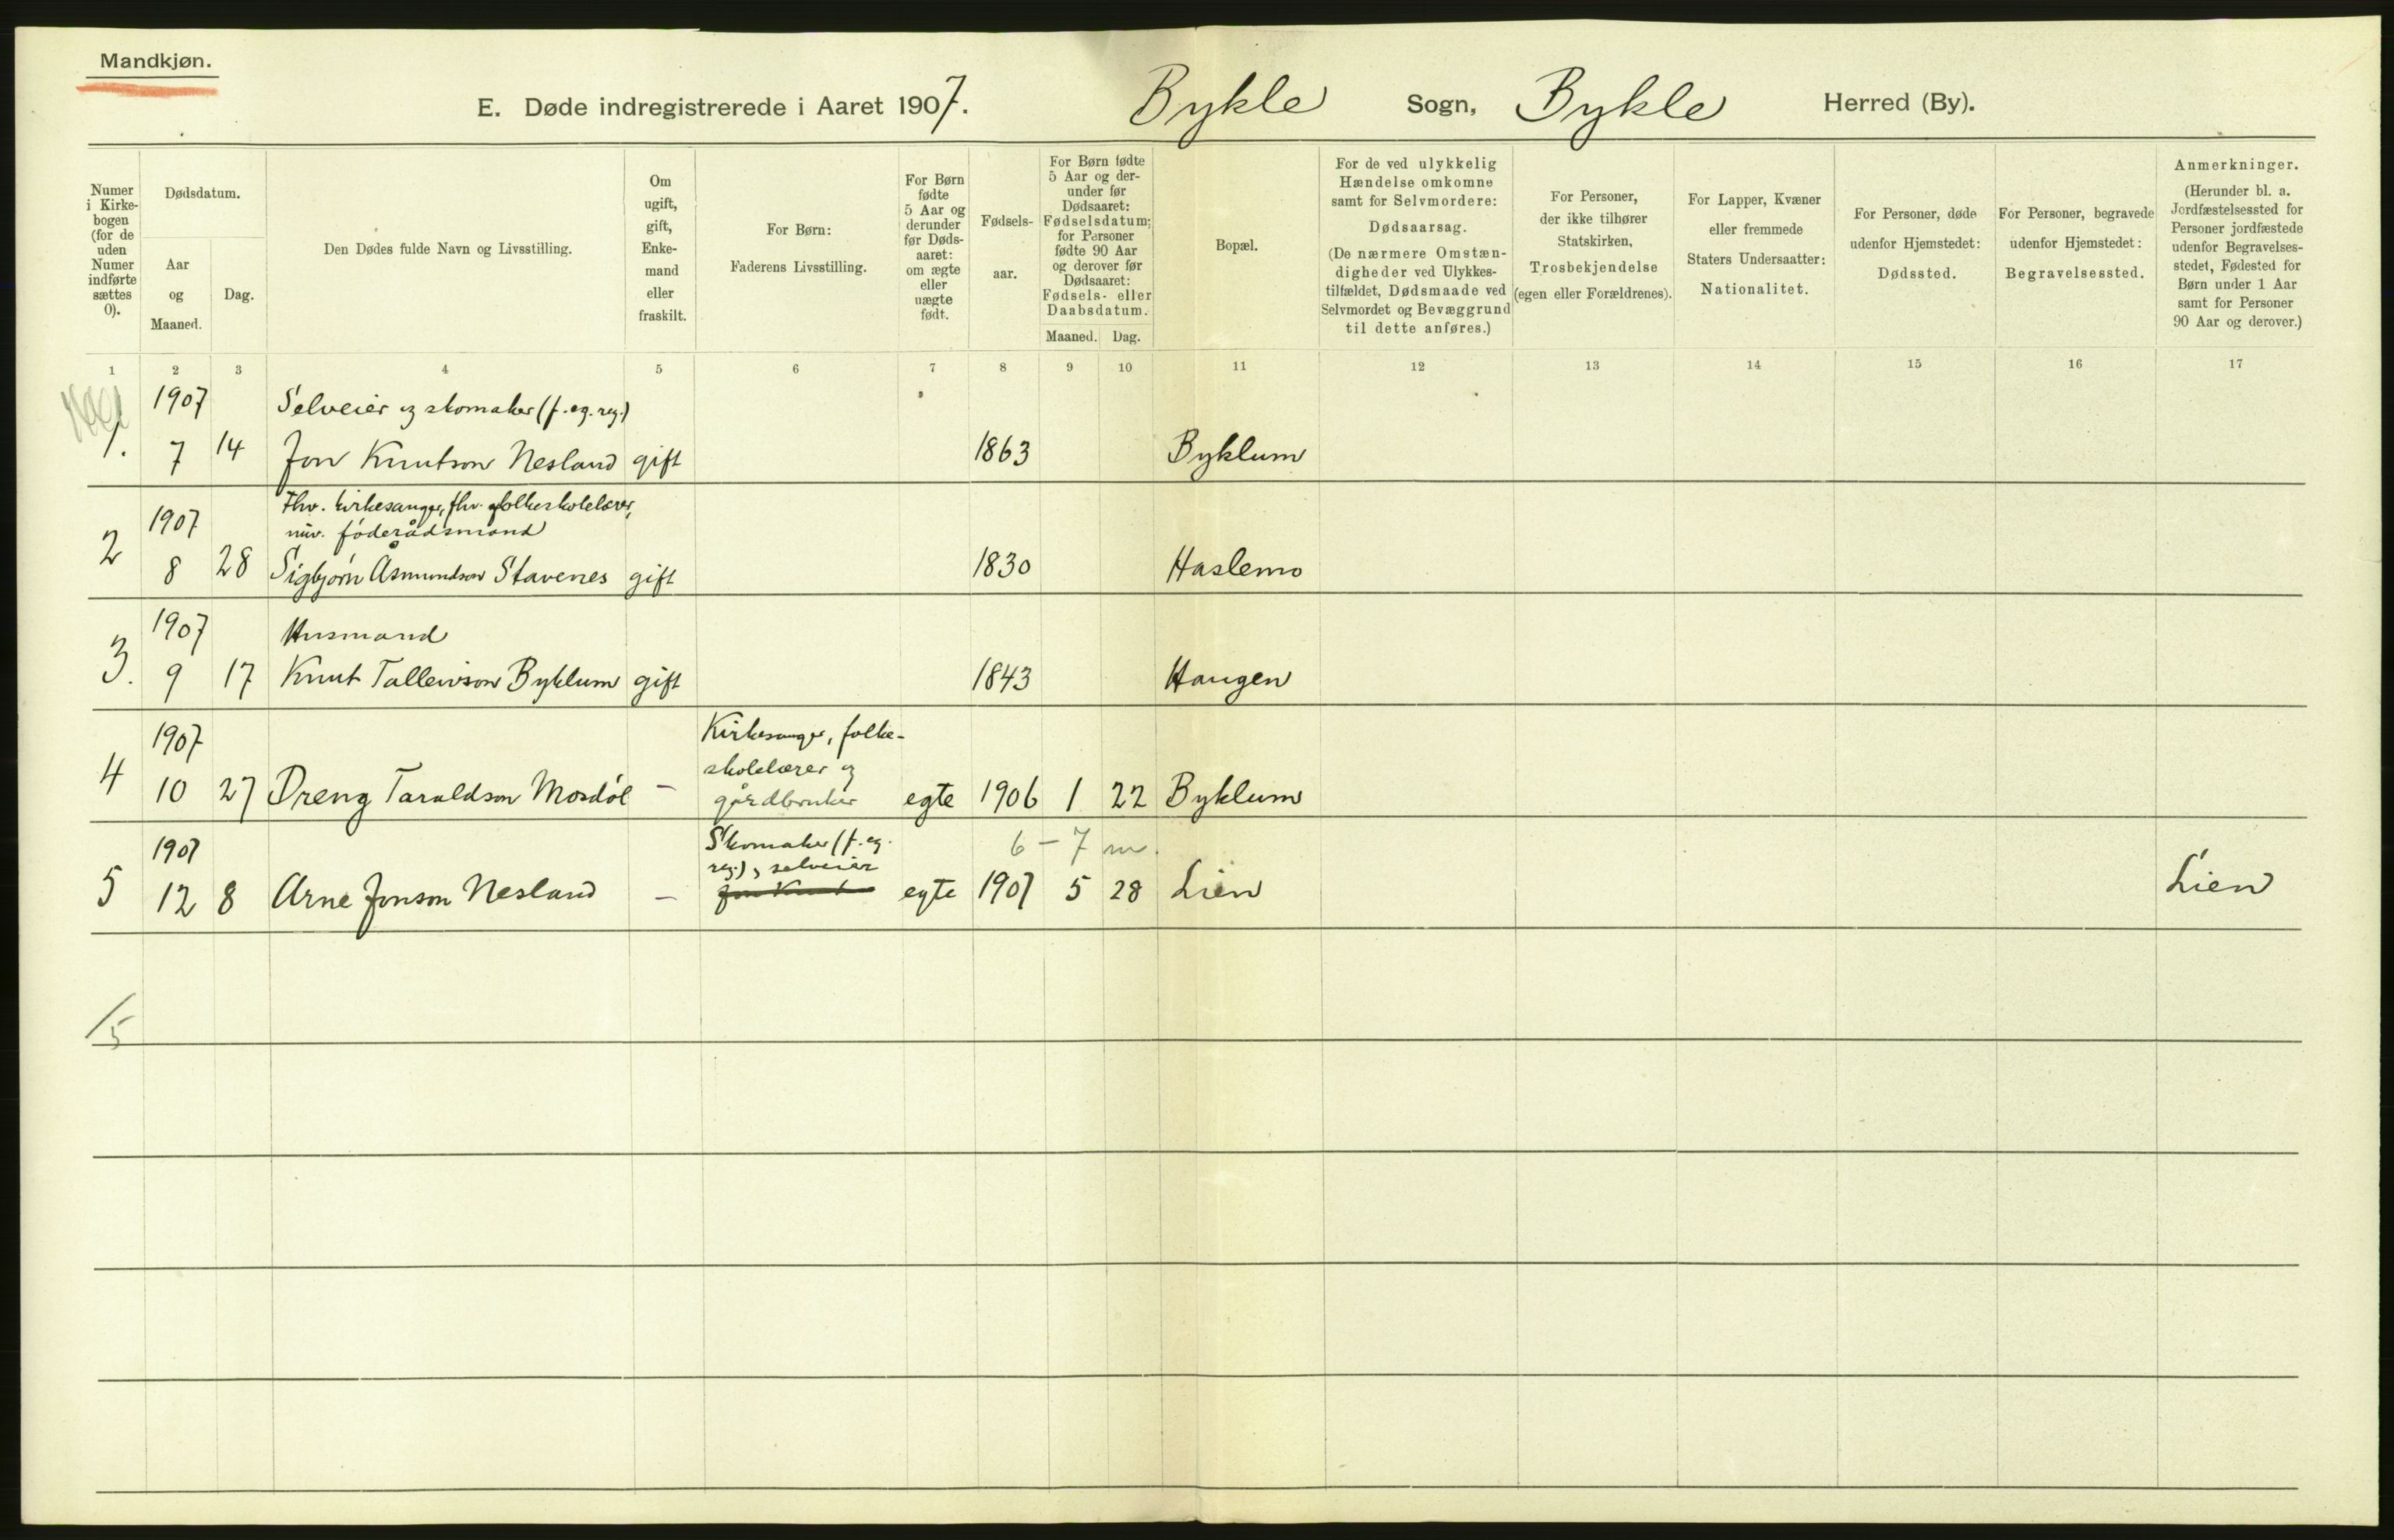 Mandkjøn.
E. Døde indregistrerede i Aaret 1907. Bykle Sogn, Bykle Herred (By).
Numer i Kirke-bogen (for de uden Numer indførte sættes 0).
Dødsdatum.
Aar og Maaned.
Dag.
Den Dødes fulde Navn og Livsstilling.
Om ugift, gift, Enke-mand eller fraskilt.
For Børn:
Faderens Livsstilling.
For Børn fødte 5 Aar og derunder før Døds-aaret: om ægte eller uægte født.
Fødsels-aar.
For Børn fødte 5 Aar og der-under før Dødsaaret: Fødselsdatum; for Personer fødte 90 Aar og derover før Dødsaaret: Fødsels- eller Daabsdatum.
Maaned. Dag.
Bopæl.
For de ved ulykkelig Hændelse omkomne samt for Selvmordere:
Dødsaarsag.
(De nærmere Omstæn-digheder ved Ulykkes-tilfældet, Dødsmaade ved Selvmordet og Bevæggrund til dette anføres.)
For Personer, der ikke tilhører Statskirken,
Trosbekjendelse
(egen eller Forældrenes).
For Lapper, Kvæner eller fremmede Staters Undersaatter:
Nationalitet.
For Personer, døde udenfor Hjemstedet:
Dødssted.
For Personer, begravede udenfor Hjemstedet:
Begravelsessted.
Anmerkninger.
(Herunder bl. a. Jordfæstelsessted for Personer jordfæstede udenfor Begravelses-stedet, Fødested for Børn under 1 Aar samt for Personer 90 Aar og derover.)
1 2 3 4 5 6 7 8 9 10 11 12 13 14 15 16 17
1907 Selveier og skomaker (f. eg. reg.)
1. 7 14 Jon Knutson Nesland gift 1863 Byklum
Fhv. kirkesanger, fhv. folkeskolelærer,
1907 nuv. føderådsmand
2 8 28 Sigbjørn Åsmundson Stavenes gift 1830 Haslemo
1907 Husmand
3. 9 17 Knut Talleivson Byklum gift 1843 Haugen
1907 Kirkesanger, folke-
skolelærer og
4 10 27 Dreng Taraldson Mosdøl - gårdbruker egte 1906 1 22 Byklum
1907 Skomaker (f. eg. 6 - 7 m.
reg.), selveier
5 12 8 Arne Jonson Nesland - Jon Knut egte 1907 5 28 Lien Lien
/5